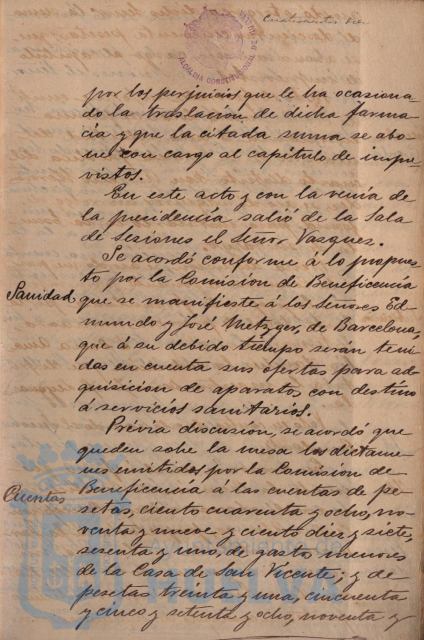 ALCALDIA CONSTITUCIONAL DE
por los perjuicios que le ha ocasiona-
do la traslacion de dicha farma
cia y que la citada suma se abo
ne con cargo al capítulo de impre
vistos.
En este acto y con la venia de
la presidencia salió de la Sala
de Sesiones el Señor Vasquez.
Se acordó conforme á lo propues
to por la Comision de Beneficencia
Sanidad
que se manifieste á los Señores Ed
mundo y José Metzger, de Barcelona,
que á su debido tiempo serán teni
das en cuenta sus ofertas para ad
quisicion de aparatos con destino
á servicios sanitarios.
Prévia discusion, se acordó que
queden sobe la mesa los dictame
nes emitidos por la Comision de
Cuentas
Beneficencia á las cuentas de pe
setas, ciento cuarenta y ocho, no-
venta y nueve y ciento diez y siete,
sesenta y uno, de gastos menores
de la Casa de San Vicente; y de
pesetas treinta y una, cincuenta
y cinco y setenta y ocho, noventa y